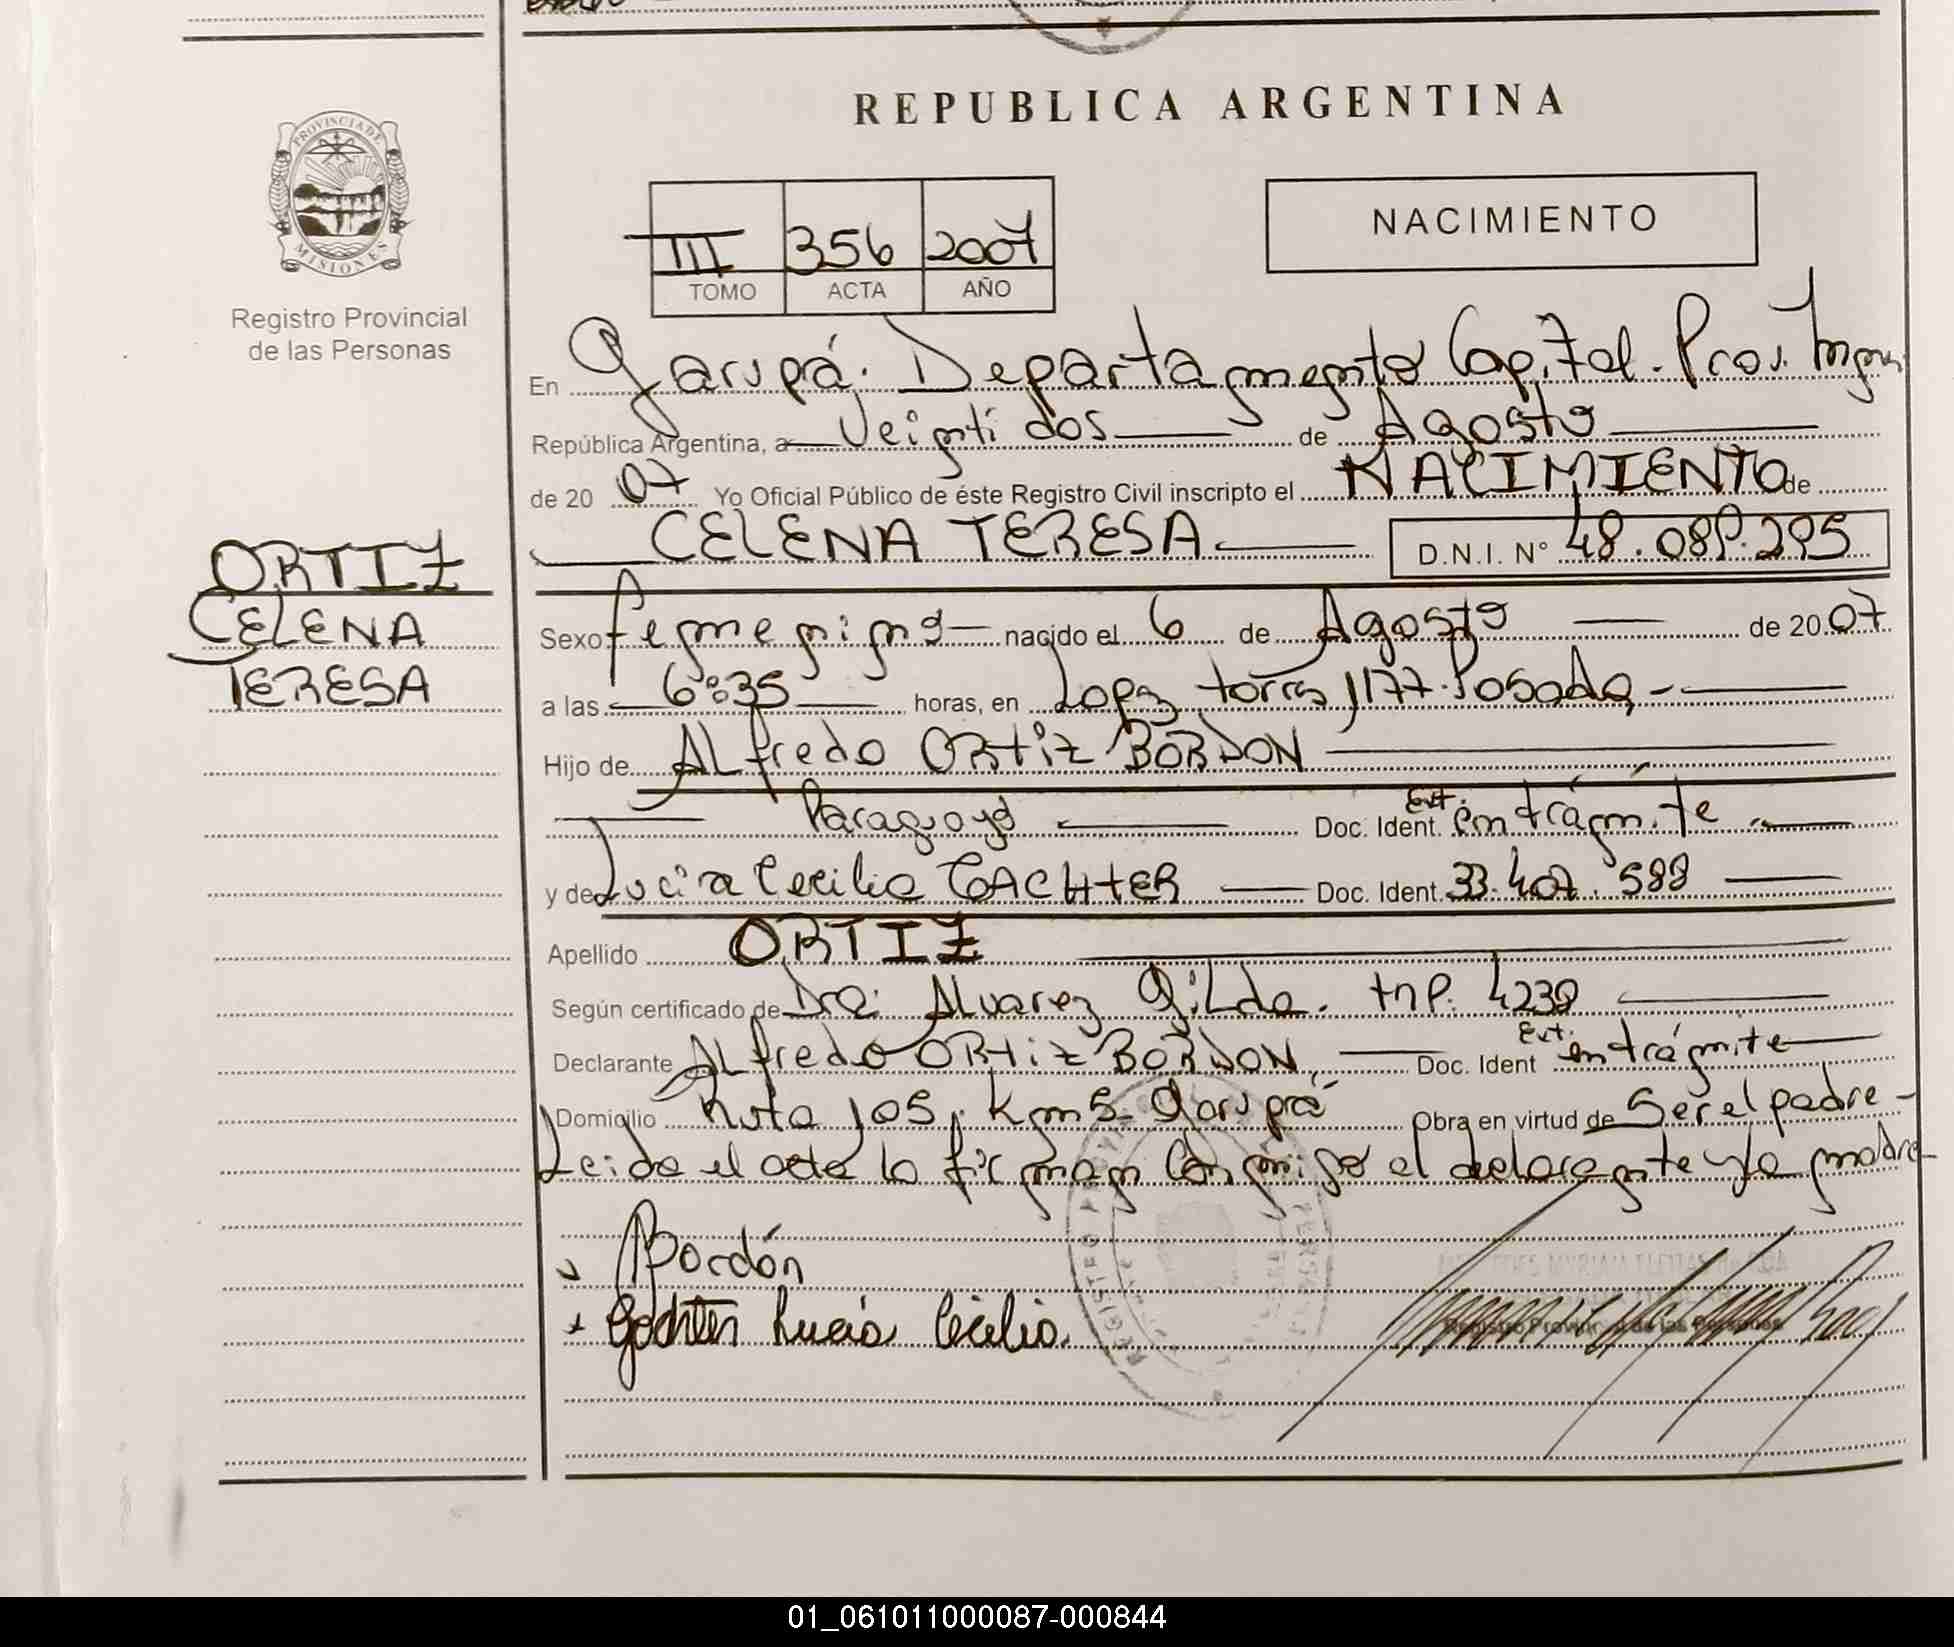 REPUBLICA ARGENTINA
PROVINCIA DE
MISIONES
Registro Provincial
de las Personas
NACIMIENTO
III 356 2007
TOMO ACTA AÑO
En Garupá. Departamento Capital. Prov. Mnes
República Argentina, a Veinti dos de Agosto
de 20 07 Yo Oficial Público de éste Registro Civil inscripto el NACIMIENTO de
CELENA TERESA D.N.I. Nº 48.089.295
ORTIZ
CELENA
TERESA
Sexo femenino nacido el 6 de Agosto de 20 07
a las 6:35 horas, en Lopez torres 1177. Posadas
Hijo de ALfredo ORtiz BORDON
Paraguayo Doc. Ident. Ext. en trámite
y de Lucia Cecilia GACHtER Doc. Ident. 33.407.588
Apellido ORTIZ
Según certificado de Dra: ALvarez GiLda. mp. 4238
Declarante ALfredo ORtiz BORDON, Doc. Ident Ext. en trámite
Domicilio Ruta 105, Km 5. Garupá Obra en virtud de Ser el padre
Leida el acta la firman Conmigo el declarante y la madre
Bordón
Gachter Lucia Cecilia.
Registro Provincial de las Personas
01_061011000087-000844